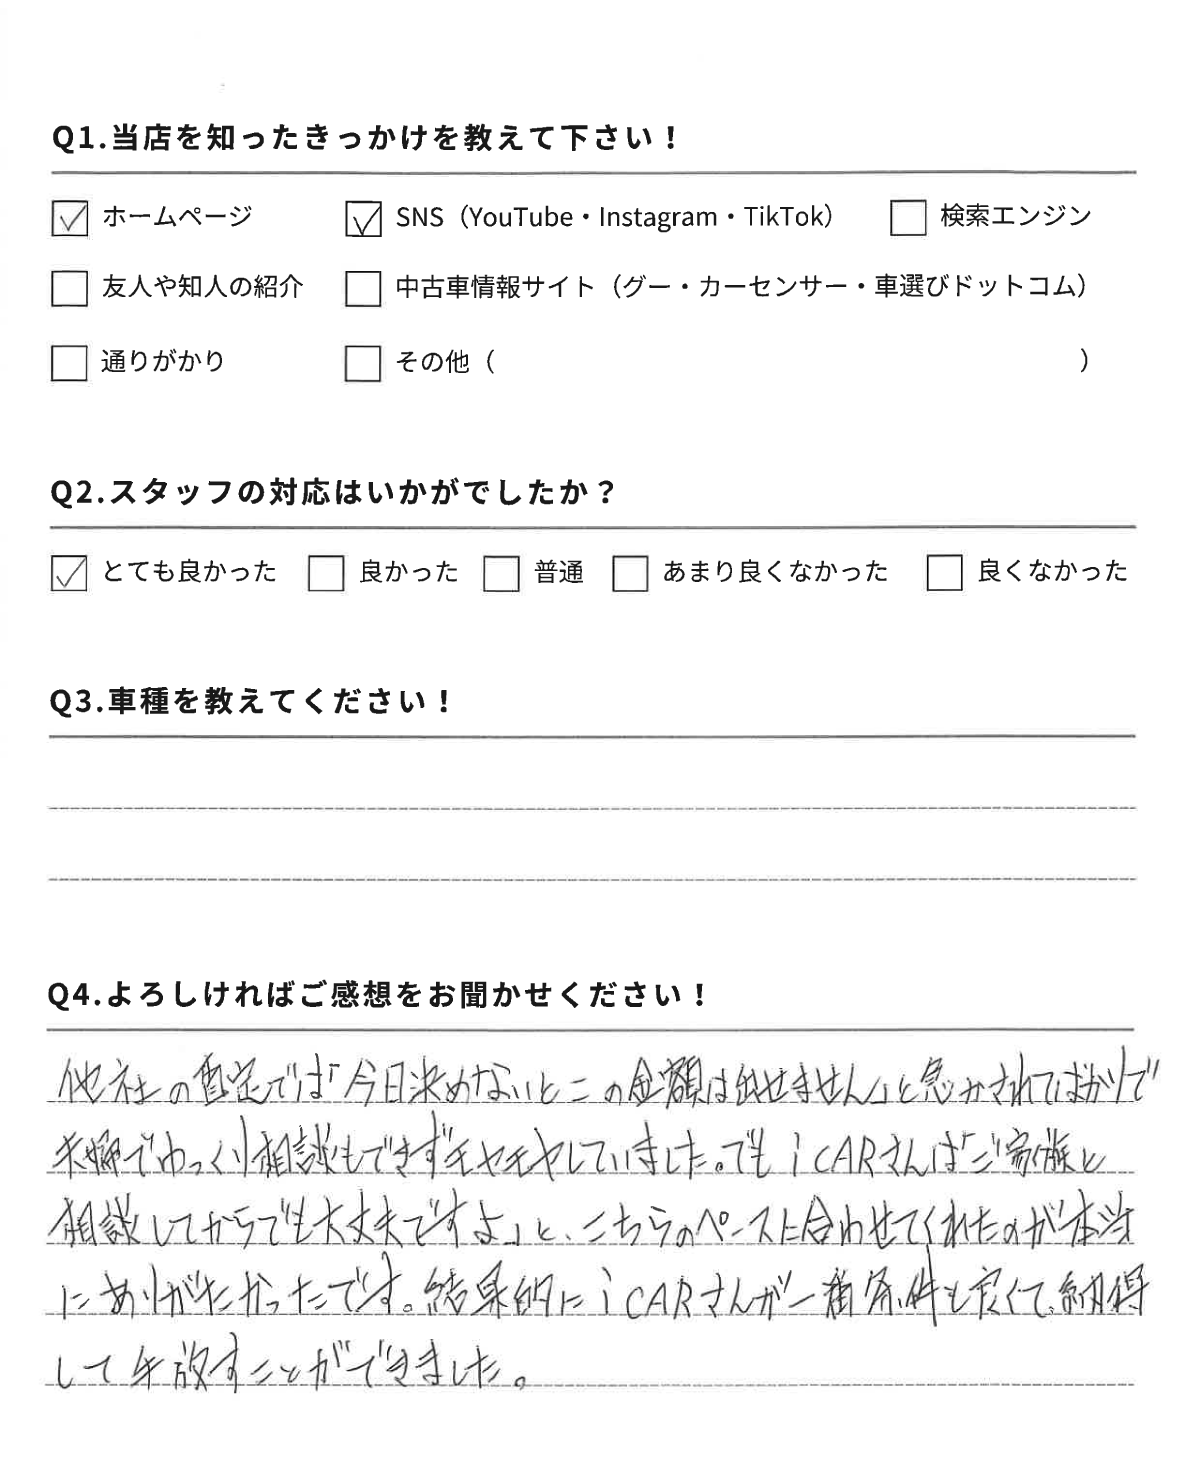 Q1.当店を知ったきっかけを教えて下さい！
ホームページ SNS（YouTube・Instagram・TikTok） 検索エンジン
友人や知人の紹介 中古車情報サイト（グー・カーセンサー・車選びドットコム）
通りがかり その他（ ）
Q2.スタッフの対応はいかがでしたか？
とても良かった 良かった 普通 あまり良くなかった 良くなかった
Q3.車種を教えてください！
Q4.よろしければご感想をお聞かせください！
他社の査定では「今日決めないとこの金額は出せません」と急かされてばかりで
夫婦でゆっくり相談もできずモヤモヤしていました。でもiCARさんは「ご家族と
相談してからでも大丈夫ですよ」と、こちらのペースに合わせてくれたのが本当
にありがたかったです。結果的にiCARさんが一番条件も良くて、納得
して手放すことができました。